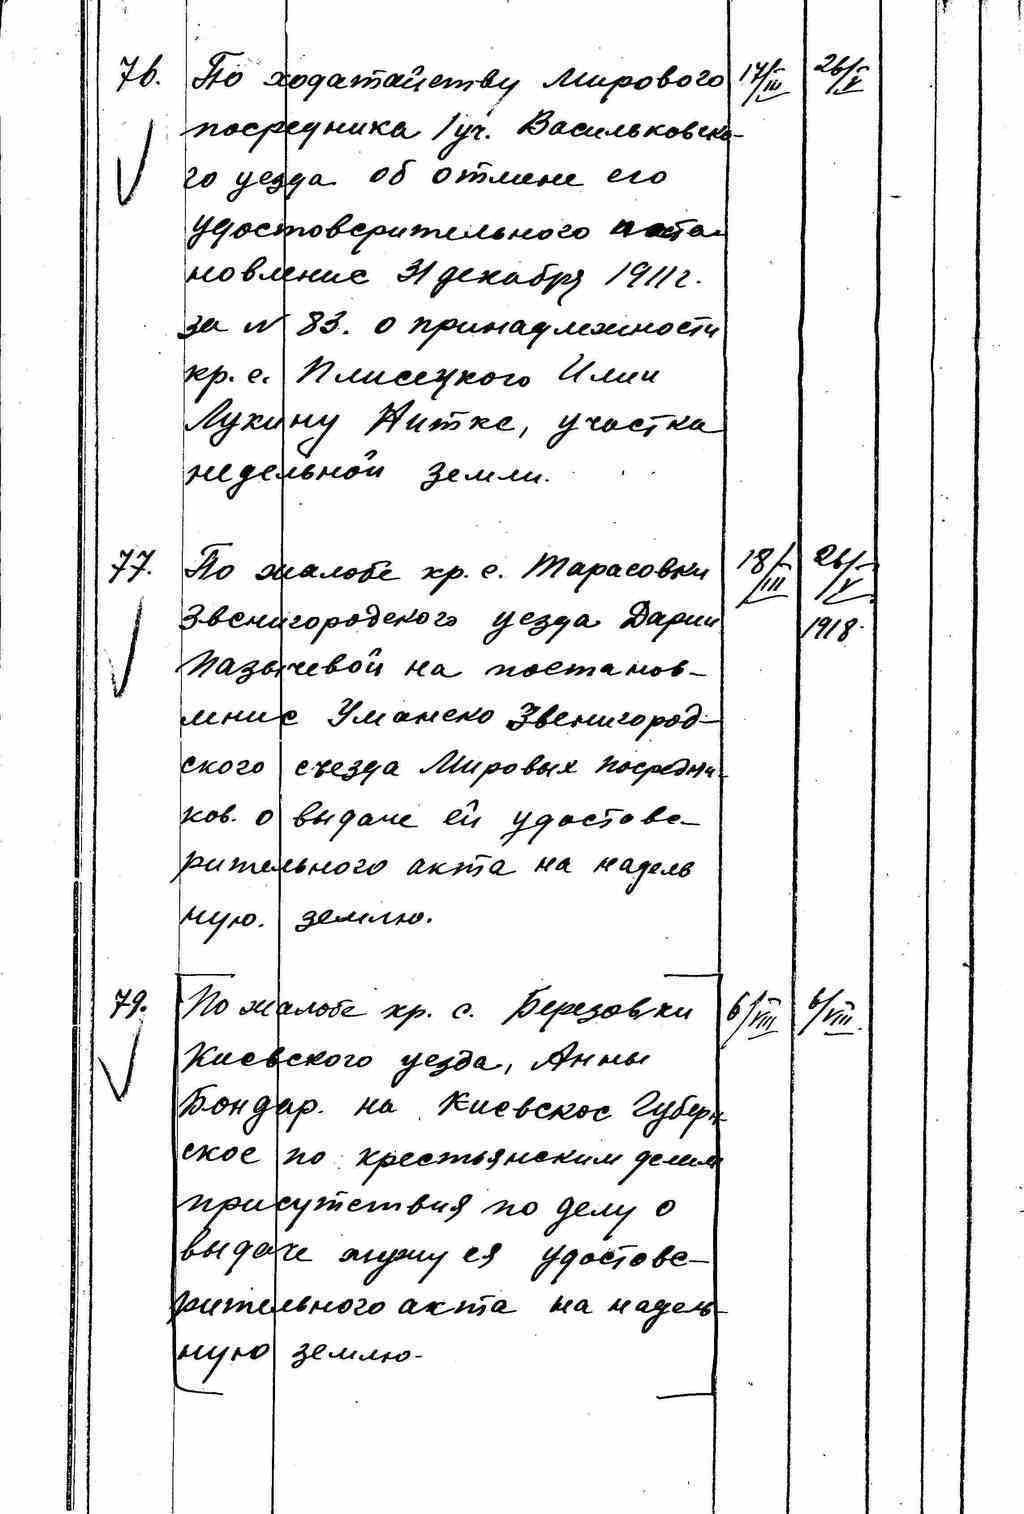 76. По ходатайству Мирового 17/III 26/V
посредника 1 уч. Васильковско-
го уезда об отмене его
удостоверительного поста-
новление 31 декабря 1911 г.
за № 83. о принадлежности
кр. с. Плисецкого Илии
Лукину Нитке, участка
недельной земли.
77. По жалобе кр. с. Тарасовки 18/III 26/V
Звенигородского уезда Дарии 1918.
Пазычевой на постанов-
ление Уманско Звенигород-
ского съезда Мировых посредни-
ков. о выдаче ей удостове-
рительного акта на надель
ную. землю.
79. По жалобе кр. с. Березовки 6/VIII 6/VIII.
Киевского уезда, Анны
Бондар. на Киевское Губерн-
ское по крестьянским делам
присутствия по делу о
выдаче мужу ея удостове-
рительного акта на надель-
ную землю.